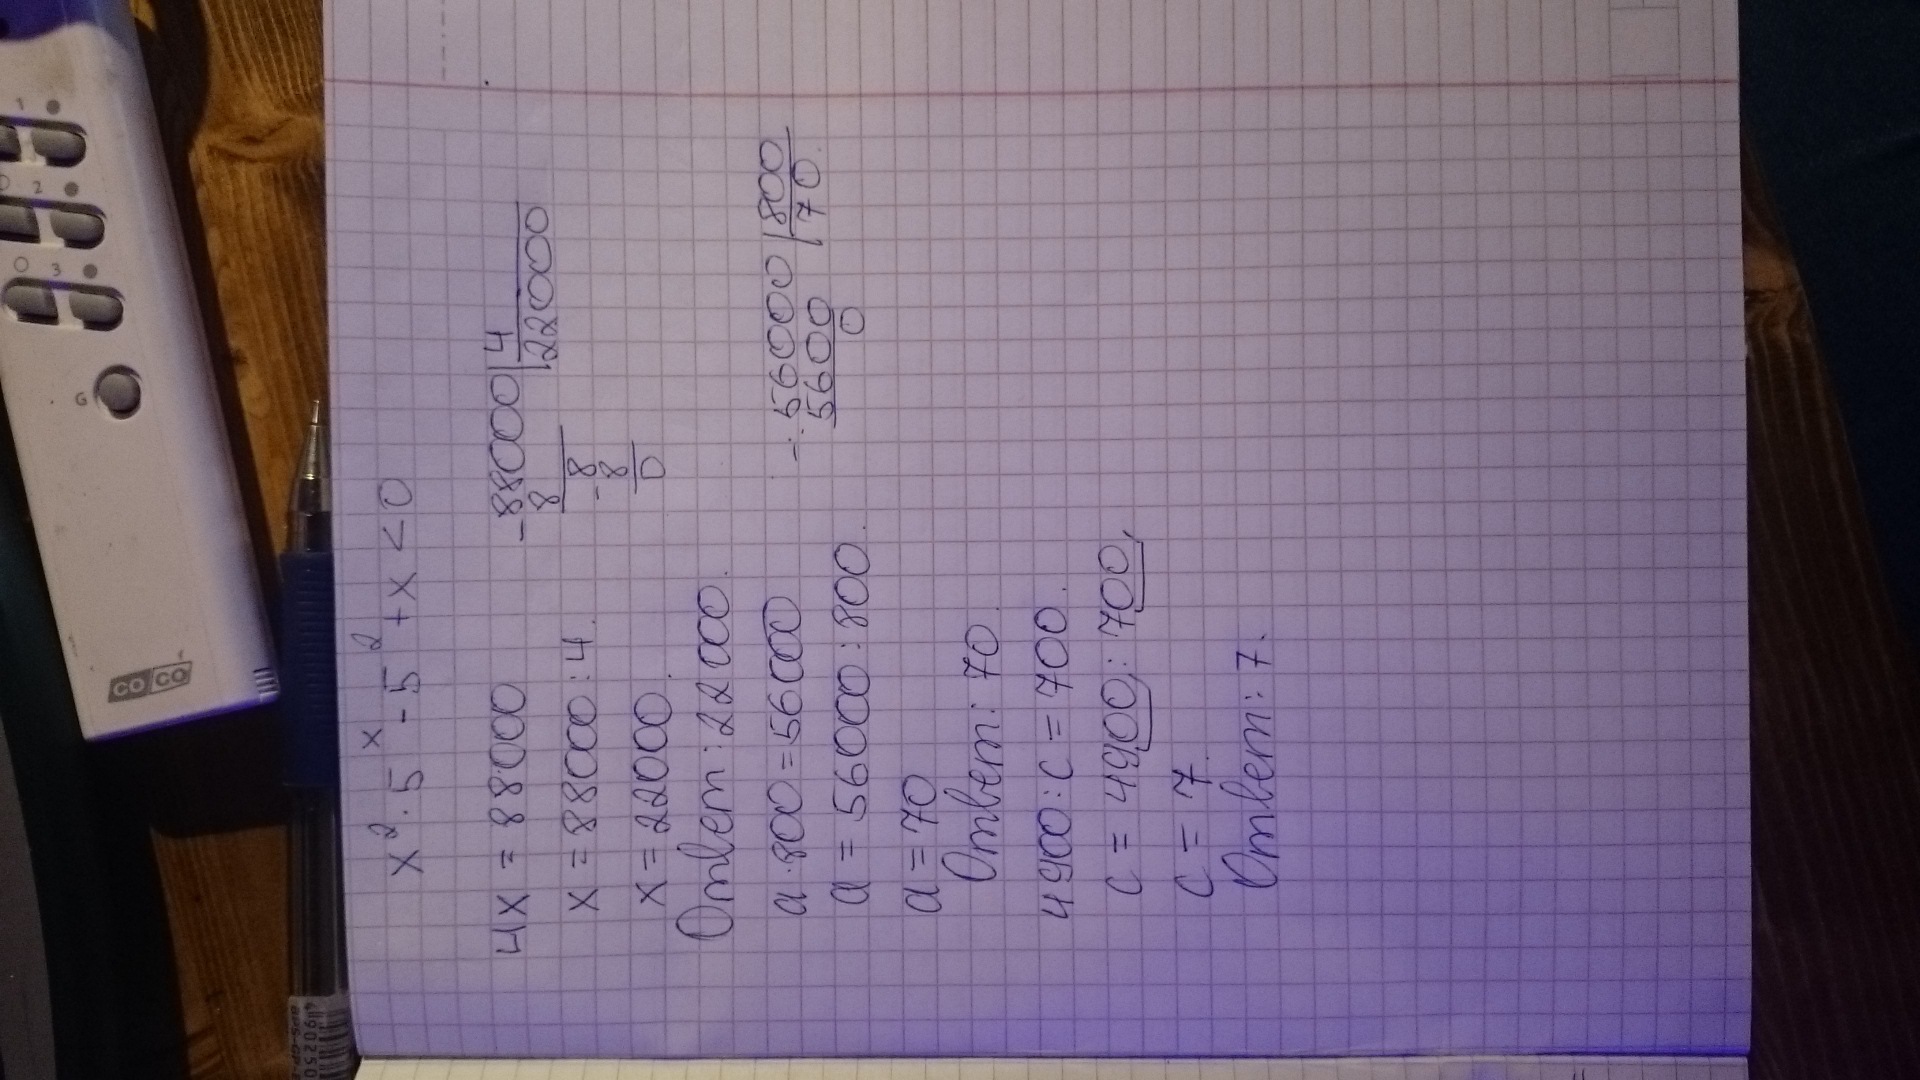 x² · 5ˣ - 5² + x < 0
4x = 88000
x = 88000 : 4.
x = 22000.
Ответ: 22000.
- 88000 | 4
8 | 22000
8
- 8
0
a · 800 = 56000
a = 56000 : 800.
a = 70
Ответ: 70.
- 56000 | 800
5600 | 70.
0
4900 : c = 700.
c = 4900 : 700
c = 7.
Ответ: 7.
CO CO
G
1
2
O 3